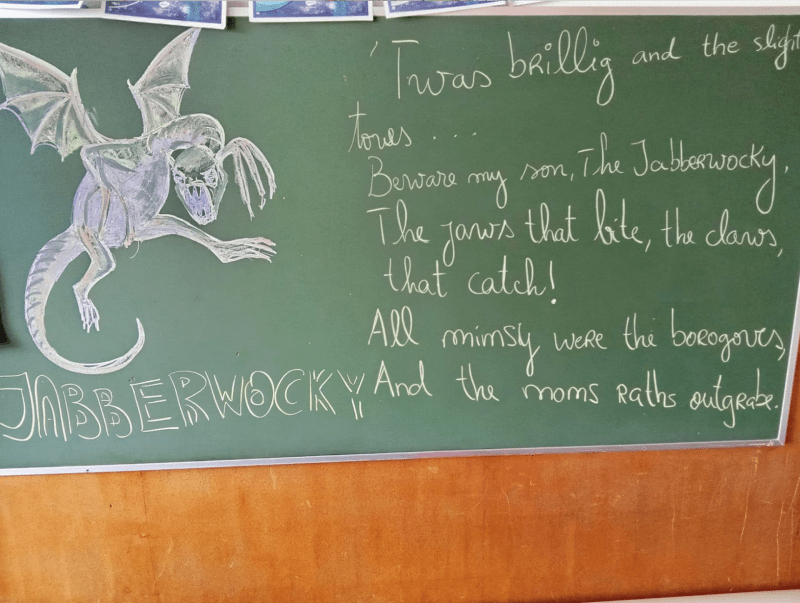 'Twas brillig and the slight
toves ....
Beware my son, The Jabberwocky,
The jaws that bite, the claws,
that catch!
All mimsy were the borogoves,
And the moms raths outgrabe.
JABBERWOCKY